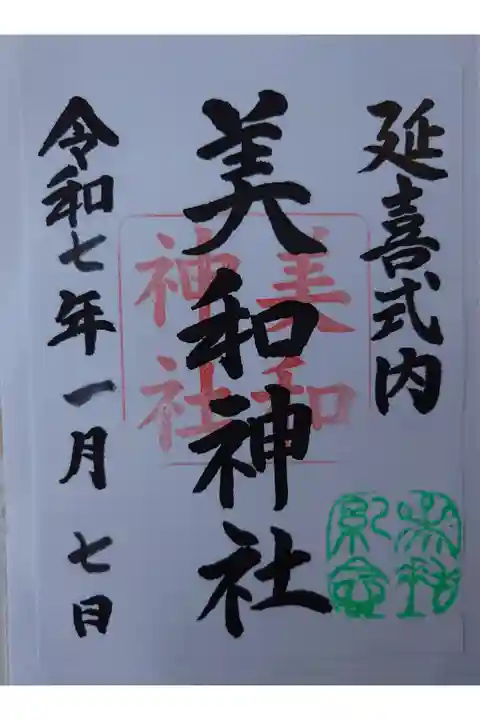 延喜式内
美和神社
美和
神社
参拝
記念
令和七年一月七日